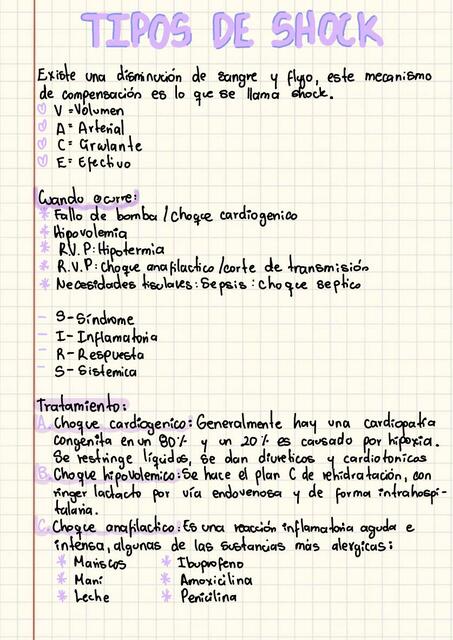 TIPOS DE SHOCK
Existe una disminución de sangre y flujo, este mecanismo
de compensación es lo que se llama shock.
V = Volumen
A = Arterial
C = Cirulante
E = Efectivo
Cuando ocurre:
* Fallo de bomba / choque cardiogenico
* Hipovolemia
* R.V.P: Hipotermia
* R.V.P: Choque anafilactico / corte de transmisión
* Necesidades tisulares: Sepsis: choque septico
- S- Síndrome
- I- Inflamatoria
- R- Respuesta
- S- Sistemica
Tratamiento:
A. Choque cardiogenico: Generalmente hay una cardiopatía
congenita en un 80% y un 20% es causado por hipoxia.
Se restringe líquidos, se dan diureticos y cardiotonicos
B. Choque hipovolemico: Se hace el plan C de rehidratación, con
ringer lactacto por vía endovenosa y de forma intrahospi-
talaria.
C. Choque anafilactico: Es una reacción inflamatoria aguda e
intensa, algunas de las sustancias más alergicas:
* Mariscos * Ibuprofeno
* Maní * Amoxicilina
* Leche * Penicilina